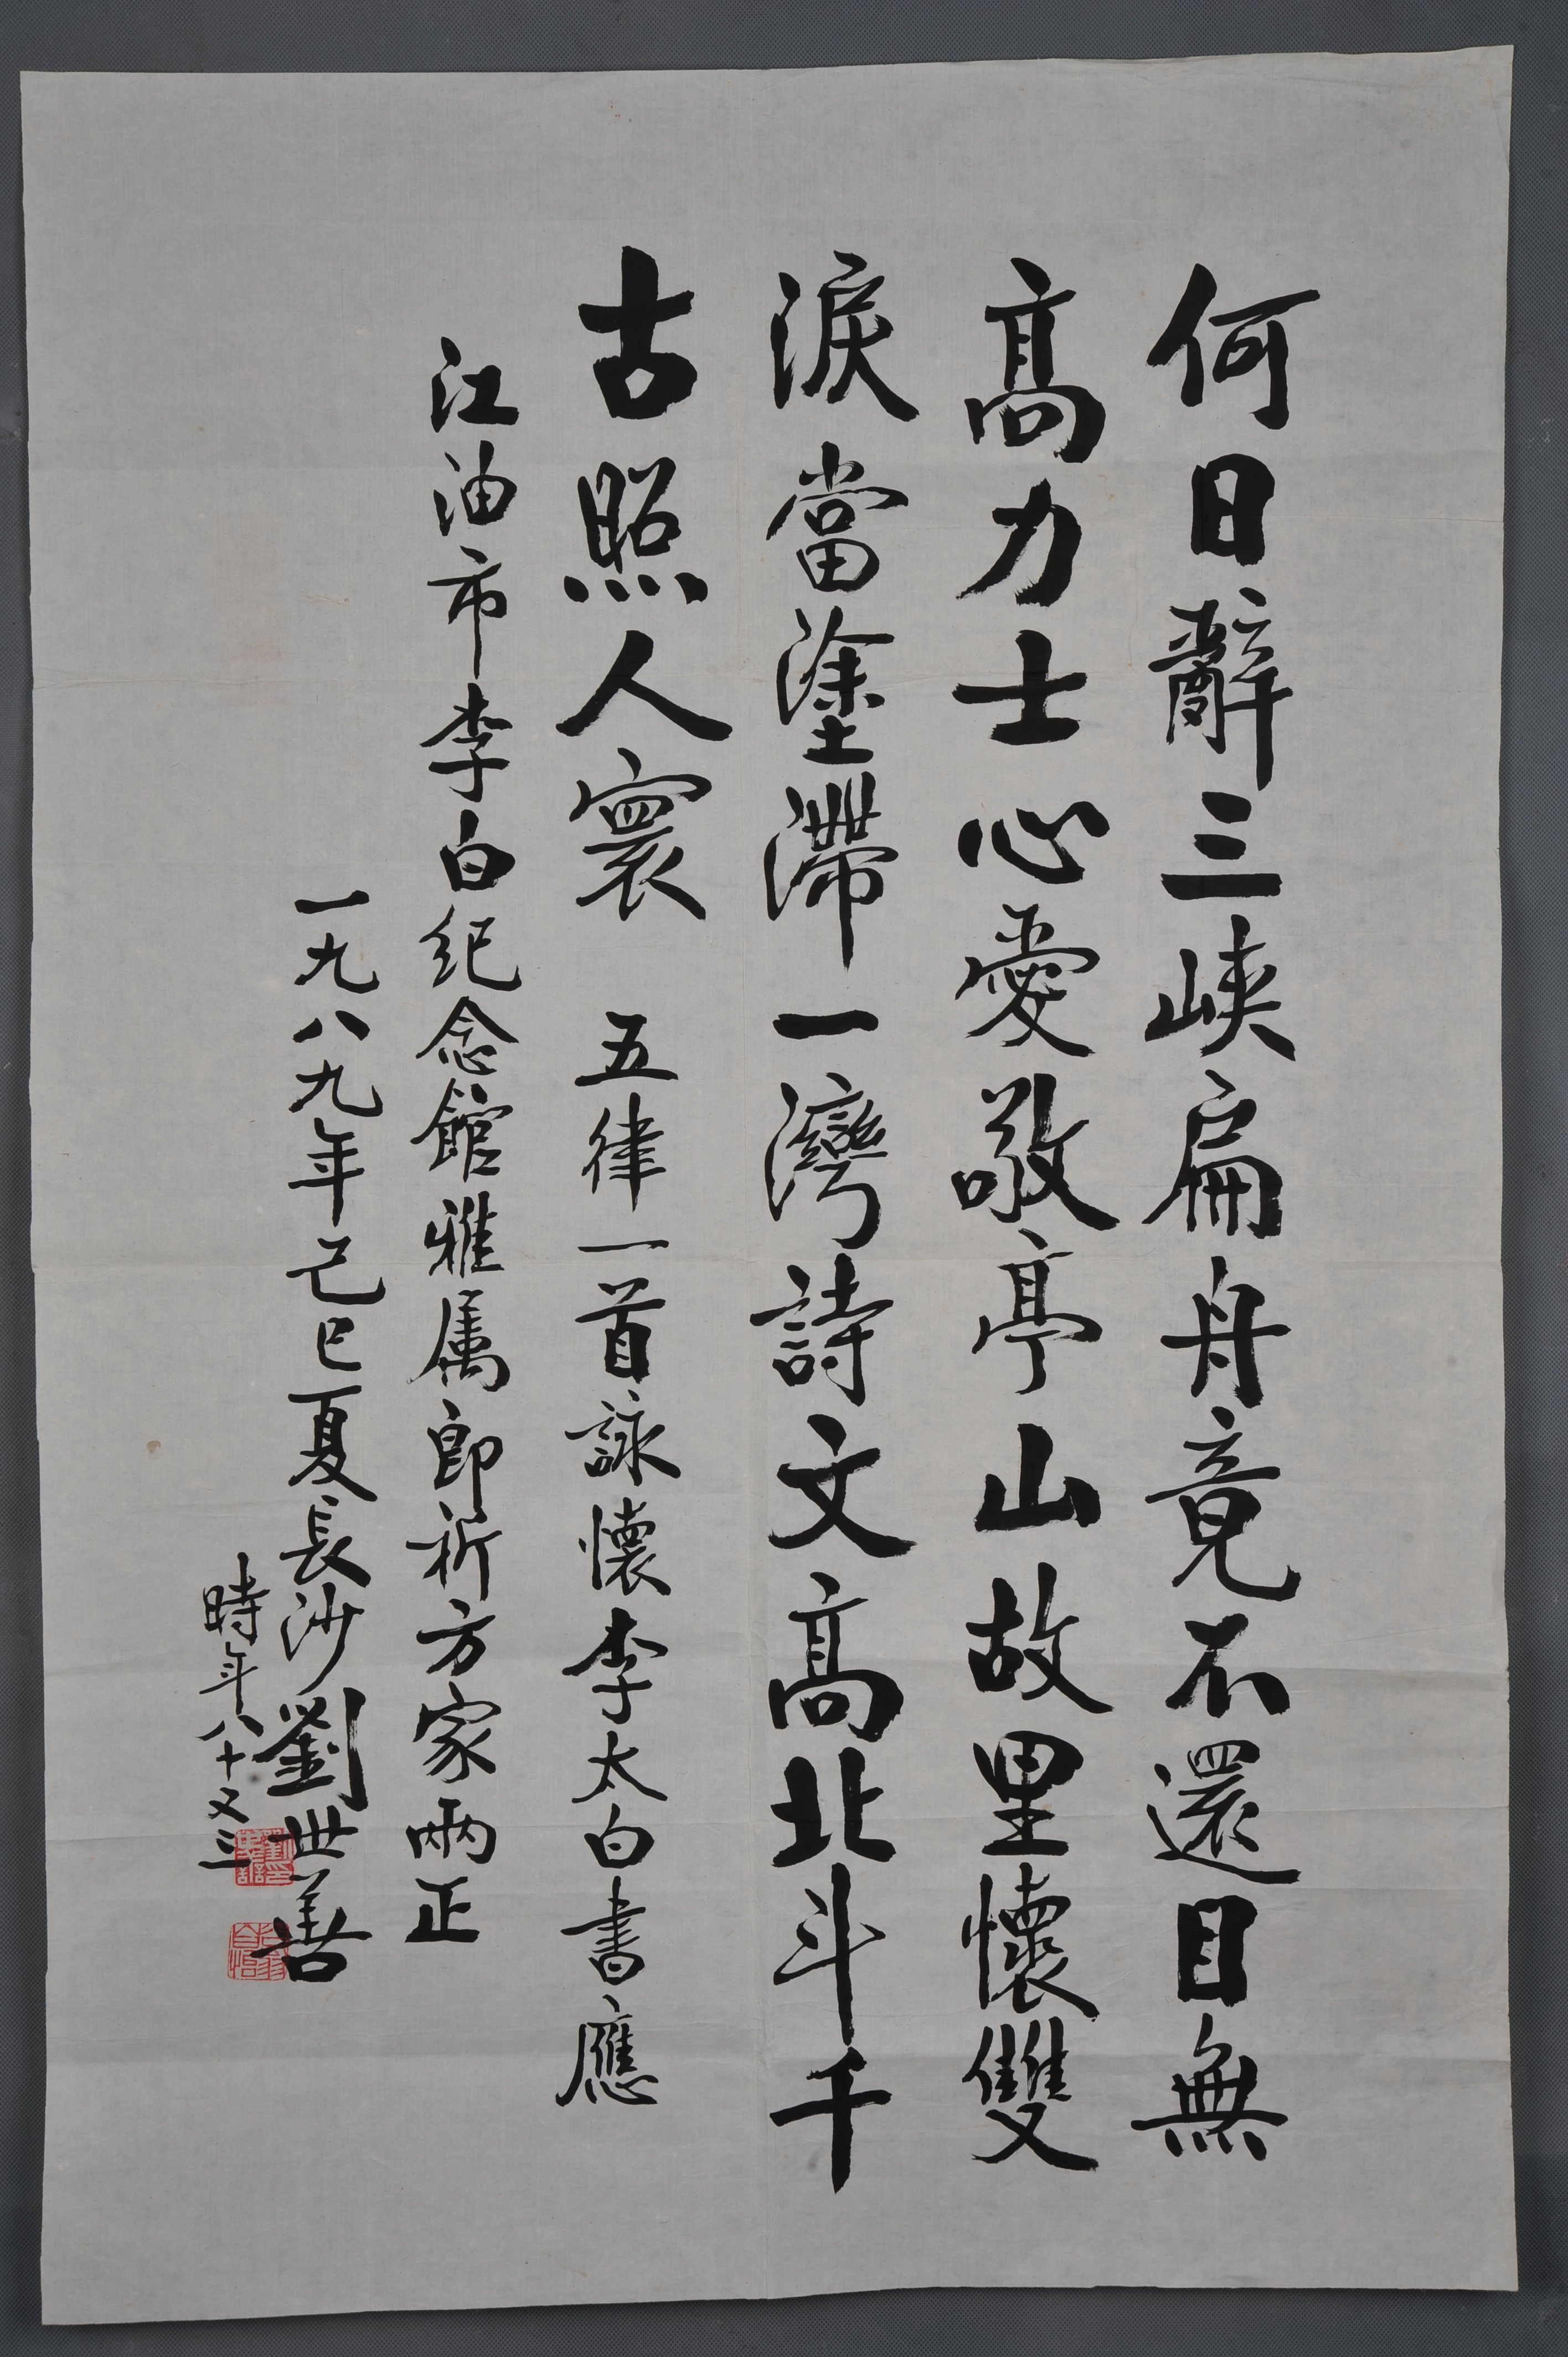 何日辭三峽扁舟竟不還目無
高力士心愛敬亭山故里懷雙
淚當塗滯一灣詩文高北斗千
古照人寰 五律一首詠懷李太白書應
江油市李白纪念館雅属郎祈方家兩正
一九八九年己巳夏長沙劉世善
時年八十又三